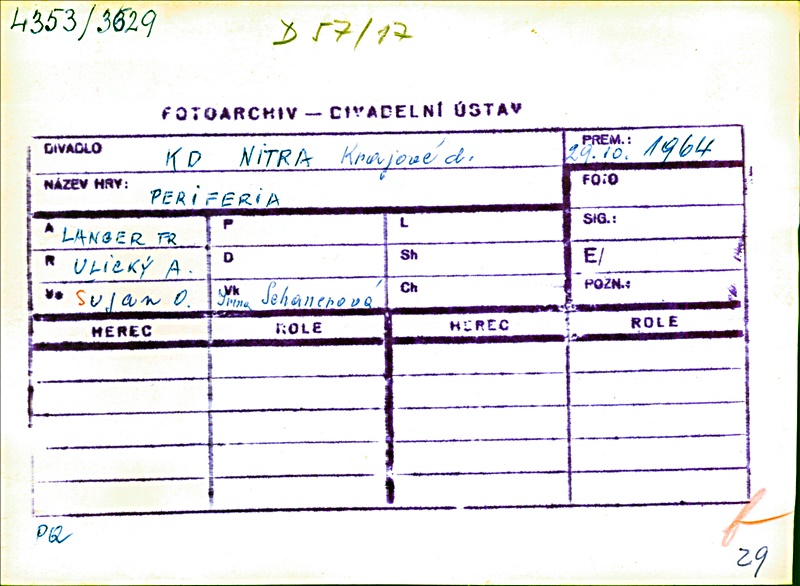 4353/3629
D 57/17
FOTOARCHIV — DIVADELNÍ ÚSTAV
DIVADLO KD NITRA Krajové d.
PREM.: 29.10. 1964
NÁZEV HRY: PERIFERIA
FOTO
A LANGER FR
P
L
SIG.:
R ULICKÝ A.
D
Sh
E/
Vk
Ch
POZN.:
HEREC ROLE HEREC ROLE
29